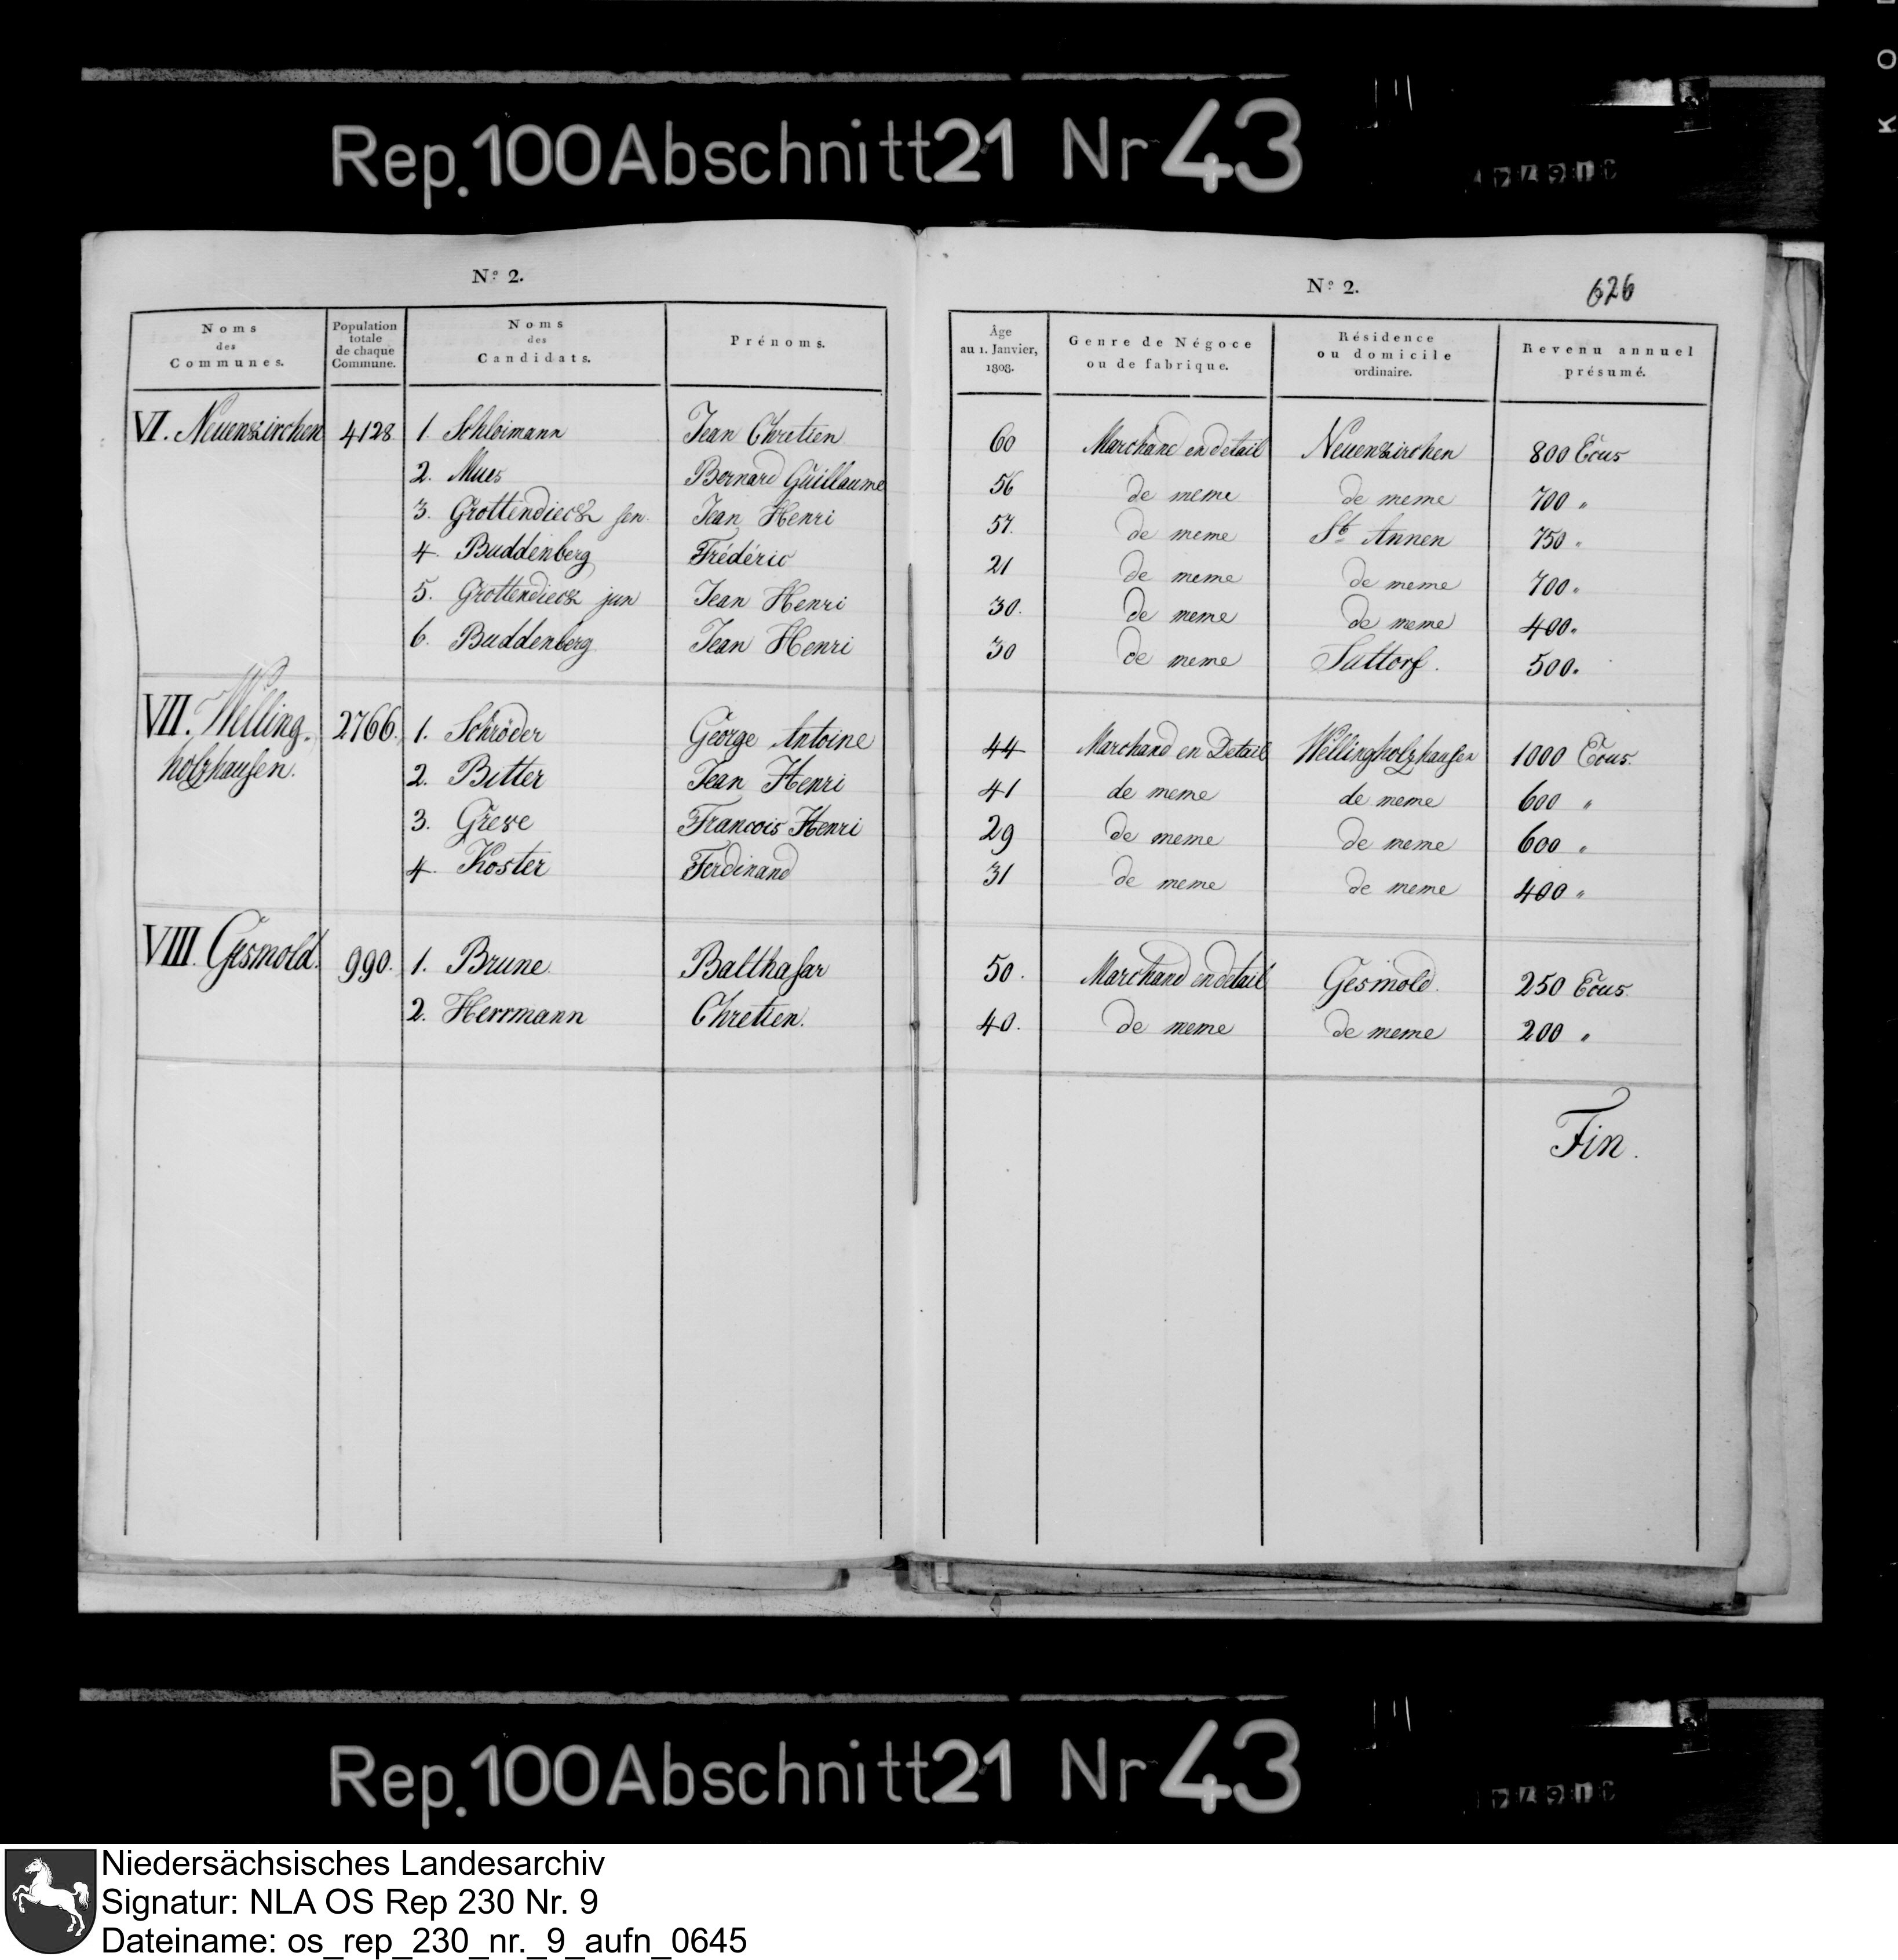 K O
Rep. 100 Abschnitt 21 Nr 43
Nº 2.
Noms des Communes. | Population totale de chaque Commune. | Noms des Candidats. | Prénoms.
VI. Neuenkirchen | 4128 | 1. Schleimann | Jean Chretien
2. Mues | Bernard Guillaume
3. Grottendieck sen. | Jean Henri
4. Buddenberg | Frédéric
5. Grottendieck jun | Jean Henri
6. Buddenberg | Jean Henri
VII. Welling- | 2766. | 1. Schröder | George Antoine
holzhausen. | 2. Bitter | Jean Henri
3. Greve | Francois Henri
4. Koster | Ferdinand
VIII. Gesmold. | 990. | 1. Brune | Balthasar
2. Herrmann | Chretien.
Nº 2.
626
Âge au 1. Janvier, 1808. | Genre de Négoce ou de fabrique. | Résidence ou domicile ordinaire. | Revenu annuel présumé.
60 | Marchand en detail | Neuenkirchen | 800 Ecus
56 | de meme | de meme | 700 "
57. | de meme | St. Annen | 750 "
21 | de meme | de meme | 700 "
30. | de meme | de meme | 400 "
30 | de meme | Suttorf. | 500 "
44 | Marchand en Detail | Wellingholzhausen | 1000 Ecus.
41 | de meme | de meme | 600 "
29 | de meme | de meme | 600 "
31 | de meme | de meme | 400 "
50. | Marchand en detail | Gesmold. | 250 Ecus.
40. | de meme | de meme | 200 "
Fin.
Rep. 100 Abschnitt 21 Nr 43
Niedersächsisches Landesarchiv
Signatur: NLA OS Rep 230 Nr. 9
Dateiname: os_rep_230_nr._9_aufn_0645